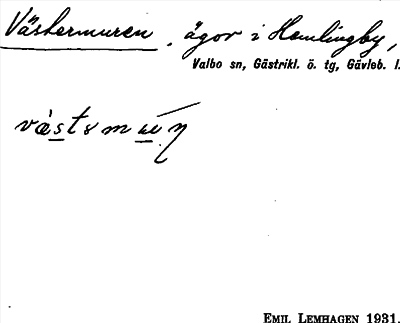 Västermuren, ägor i Hemlingby,
Valbo sn, Gästrikl. ö. tg, Gävleb. l.
EMIL LEMHAGEN 1931.